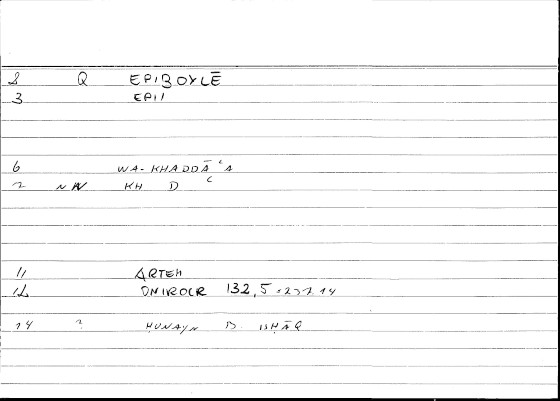 8 Q EPIBOYLĒ
3 EPI1
6 WA-KHADDĀʿA
2 NW KH D ʿ
11 ARTEM
12 ONIROCR 132,5 : 232,14
14 2 ḤUNAYN B. ISḤĀQ